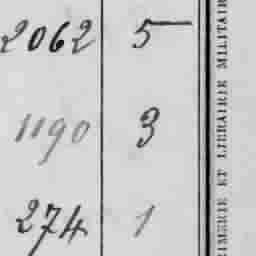 2062 5
1190 3
274 1
RIMERIE ET LIBRAIRIE MILITAIR